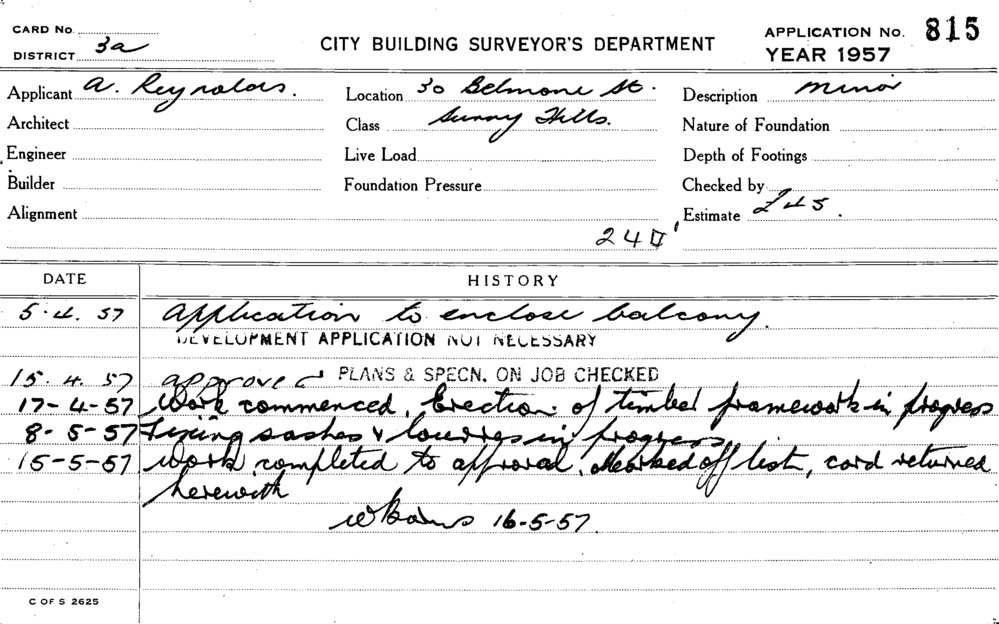 CARD No.
DISTRICT 3a
CITY BUILDING SURVEYOR'S DEPARTMENT
APPLICATION No. 815
YEAR 1957
Applicant A. Reynolds. Location 30 Belmore St. Description Minor
Architect Class Surry Hills. Nature of Foundation
Engineer Live Load Depth of Footings
Builder Foundation Pressure Checked by
Alignment Estimate £45.
240
DATE HISTORY
5.4.57 Application to enclose balcony.
DEVELOPMENT APPLICATION NOT NECESSARY
15.4.57 approved PLANS & SPECN. ON JOB CHECKED
17-4-57 Work commenced. Erection of timber framework in progress
8-5-57 Fixing sashes & louvres in progress
15-5-57 Work completed to approval. Marked off list, card returned
herewith
16-5-57.
C OF S 2625